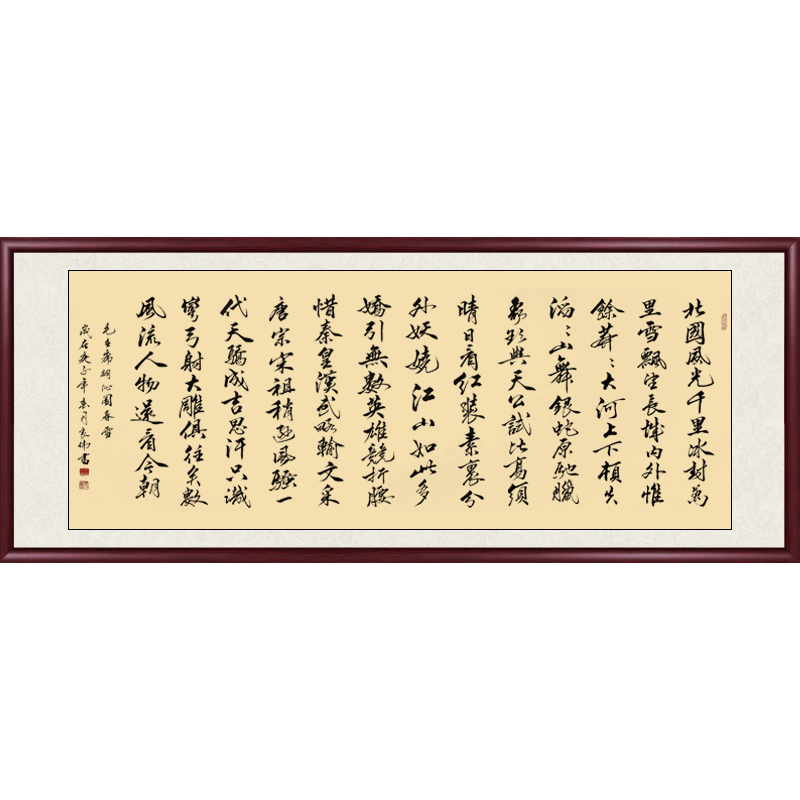 北國風光千里冰封萬
里雪飄望長城內外惟
餘莽〻大河上下頓失
滔〻山舞銀蛇原馳臘
象欲與天公試比高須
晴日看紅裝素裹分
外妖嬈江山如此多
嬌引無數英雄競折腰
惜秦皇漢武略輸文采
唐宗宋祖稍遜風騷一
代天驕成吉思汗只識
彎弓射大雕俱往矣數
風流人物還看今朝
毛主席詞沁園春雪
歲在庚子年春月書